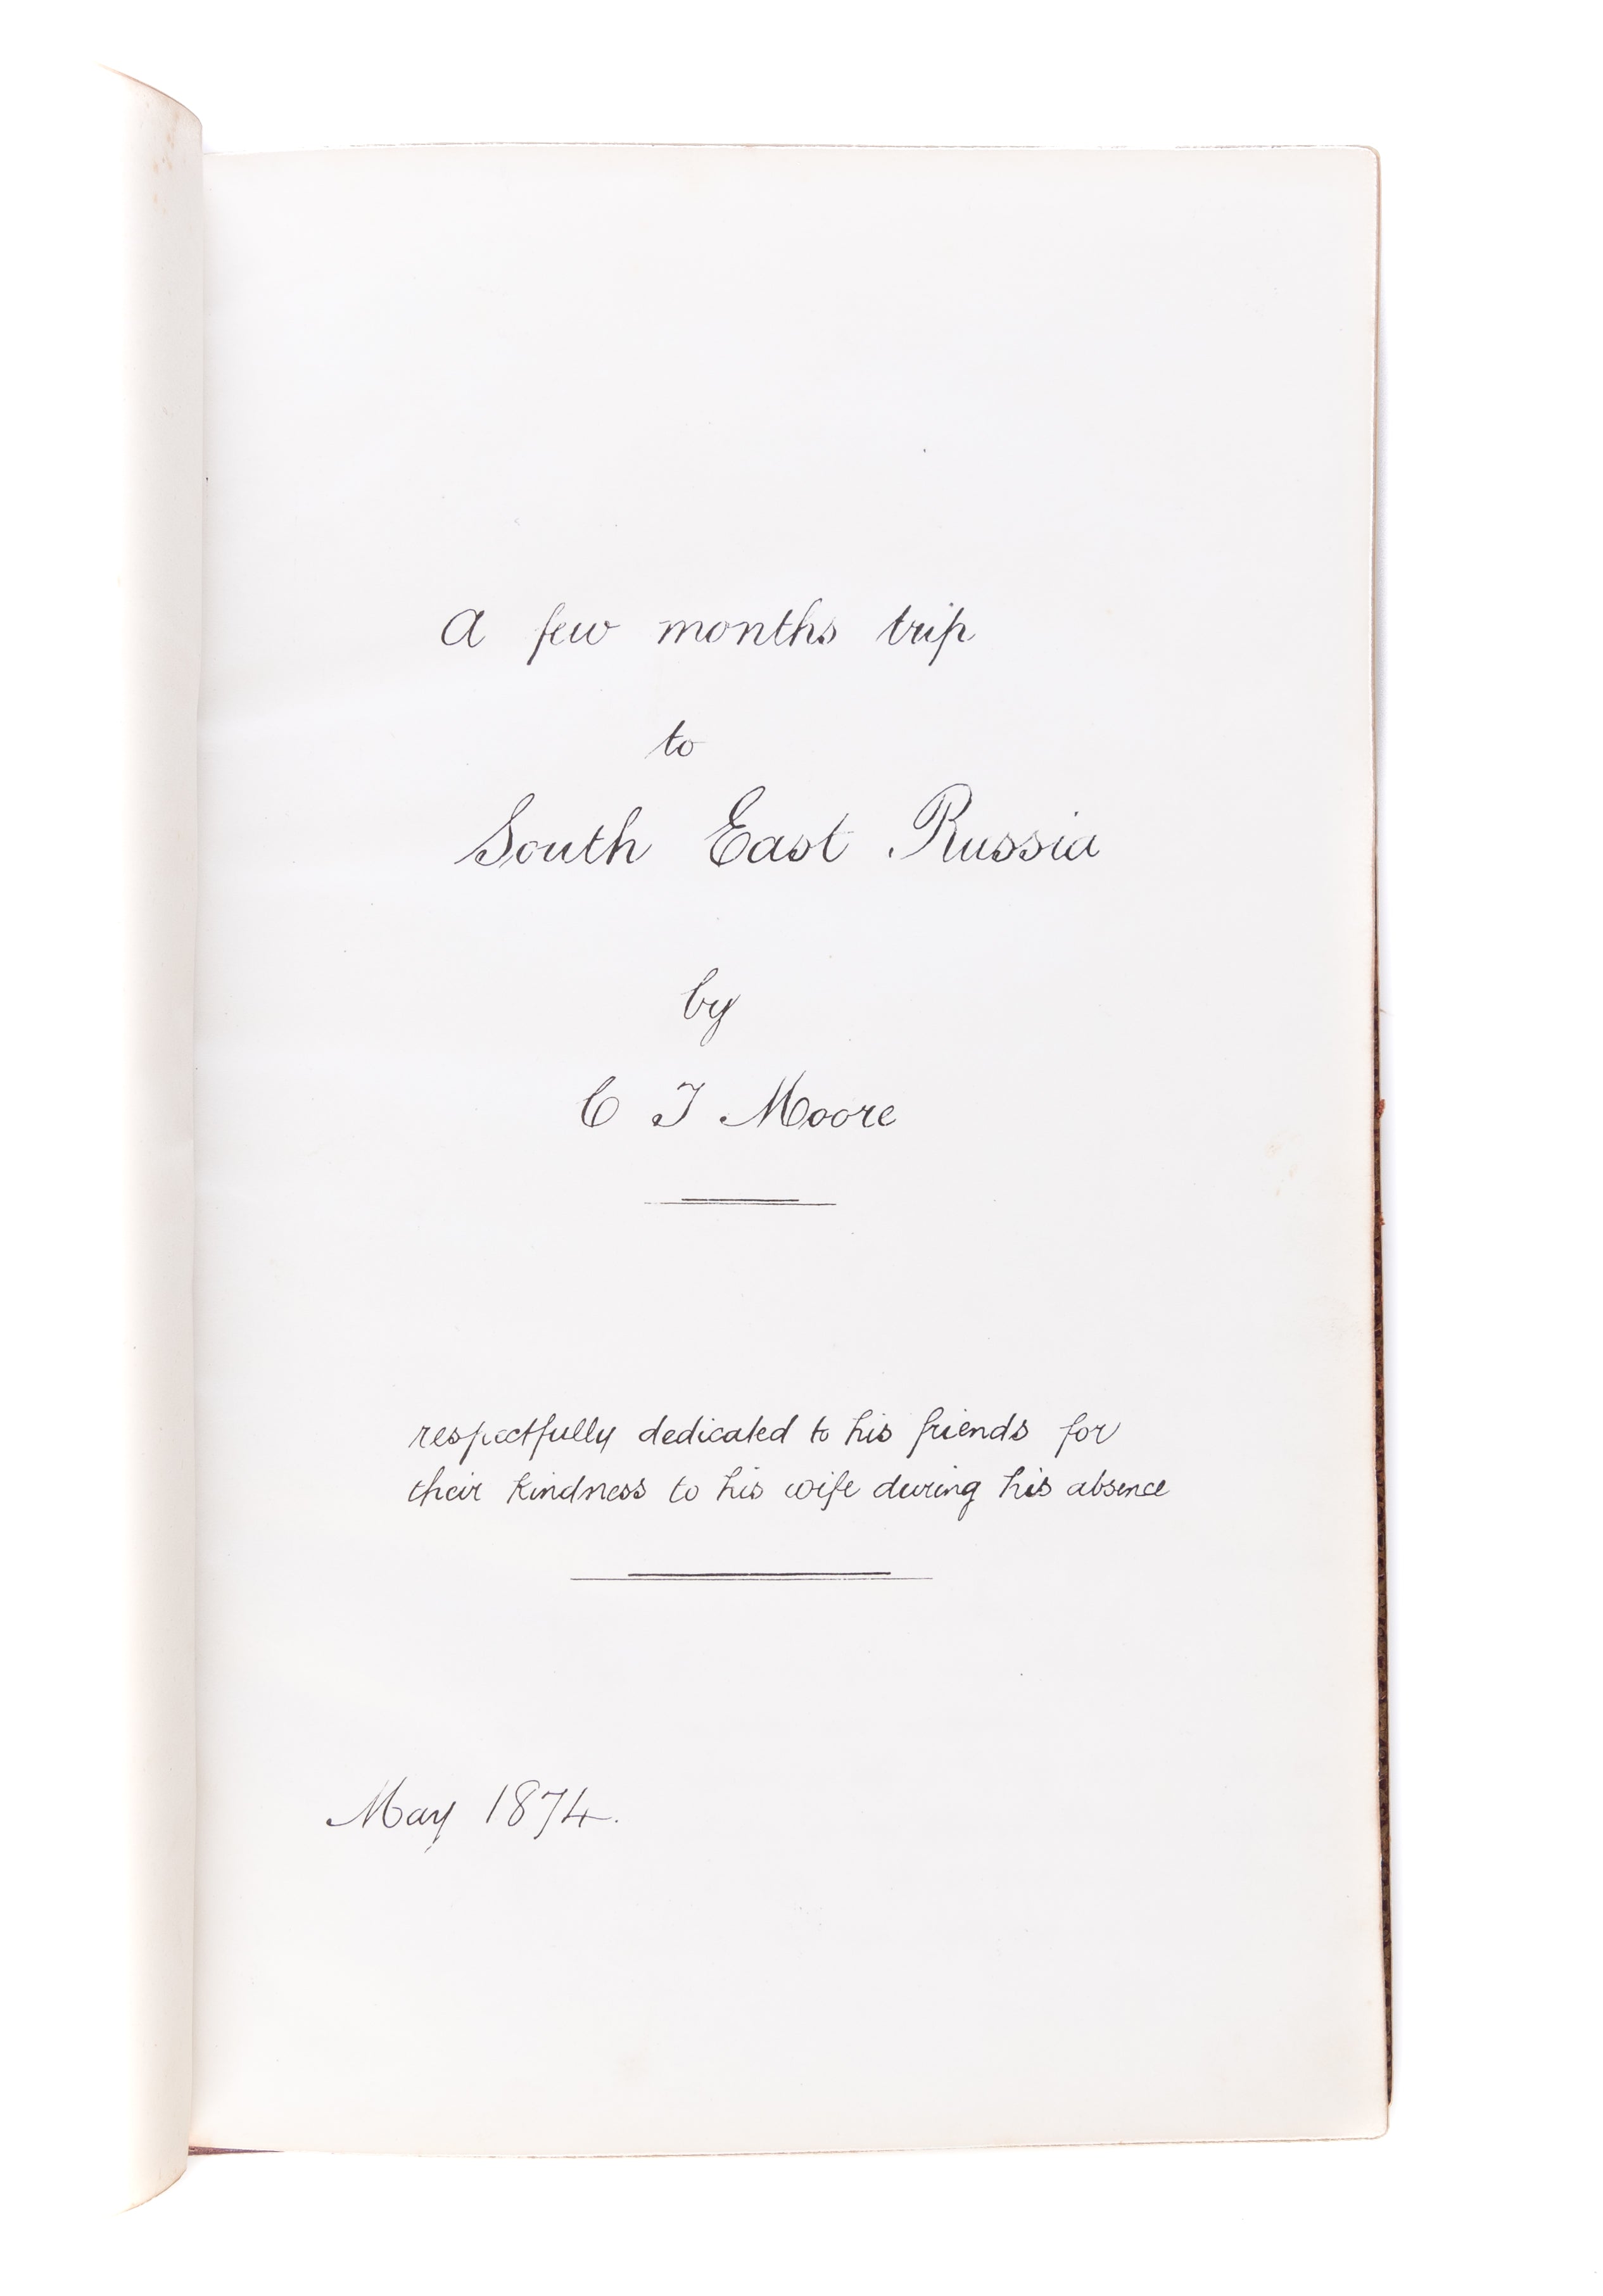 A few months trip
to
South East Russia
by
C T Moore
respectfully dedicated to his friends for
their kindness to his wife during his absence
May 1874.